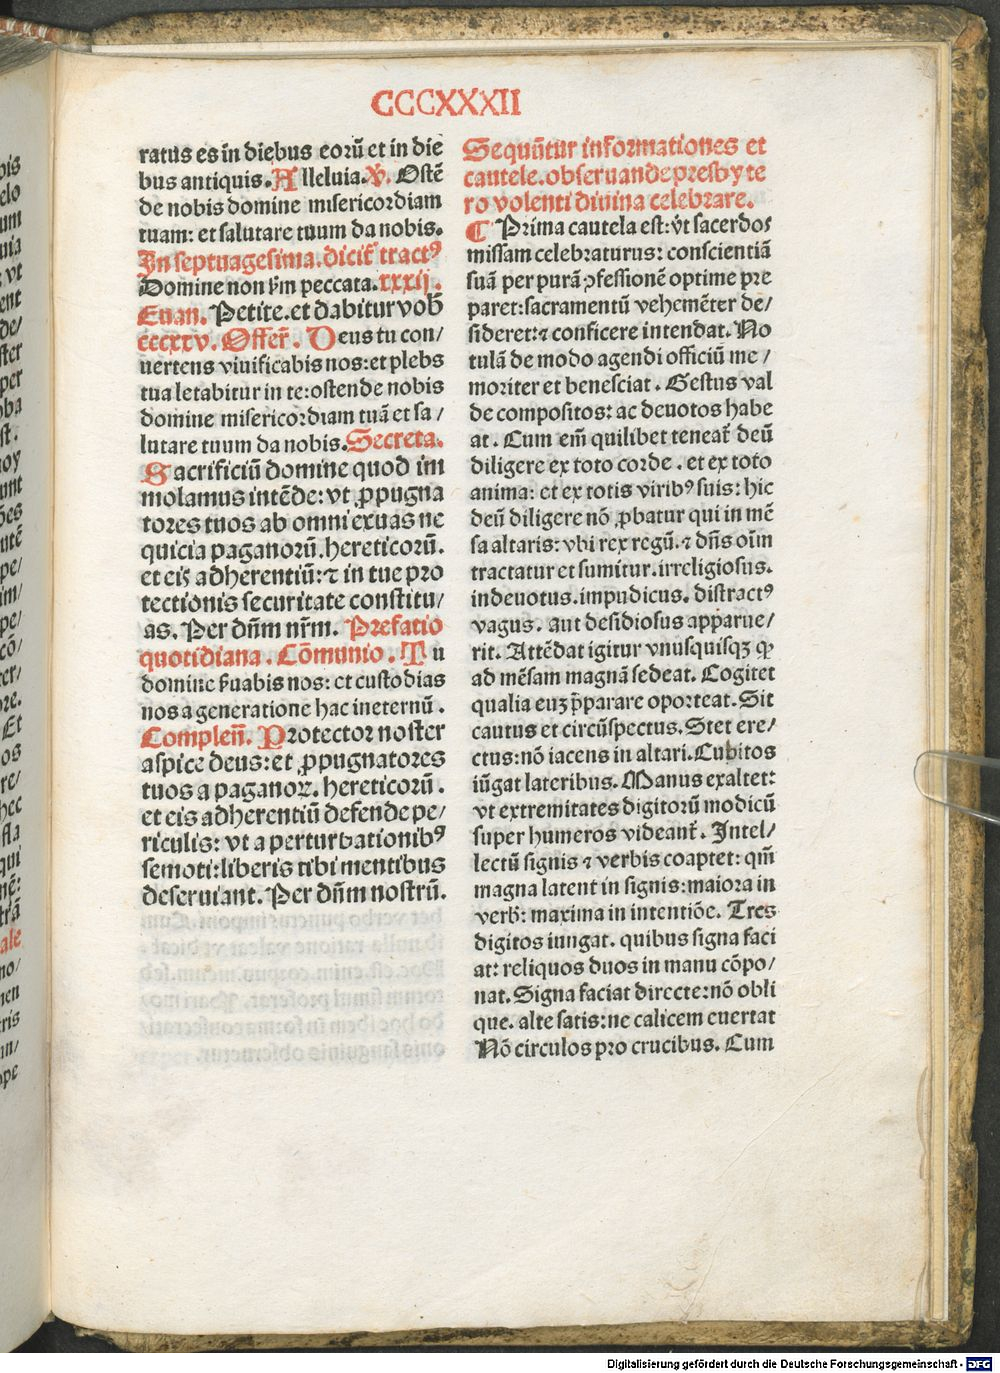 CCCXXXII
ratus es in diebus eorū et in die
bus antiquis. Alleluia. ℣. Ostē
de nobis domine misericordiam
tuam: et salutare tuum da nobis.
In septuagesima. dicit᷑ tractꝰ
Domine non ẜm peccata. xxxij.
Euan. Petite. et dabitur vob̄
ccccxxv. Offer̄. Deus tu con/
uertens viuificabis nos: et plebs
tua letabitur in te: ostende nobis
domine misericordiam tuā et sa/
lutare tuum da nobis. Secreta.
Sacrificiū domine quod im
molamus intēde: vt ꝓpugna
tores tuos ab omni exuas ne
quicia paganorū. hereticorū.
et eis adherentiū: ⁊ in tue pro
tectionis securitate constitu/
as. Per dn̄m nr̄m. Prefatio
quotidiana. Cōmunio. Tu
domine ẜuabis nos: et custodias
nos a generatione hac ineternū.
Complen̄. Protector noster
aspice deus: et ꝓpugnatores
tuos a paganoꝝ. hereticorū.
et eis adherentiū defende pe/
riculis: vt a perturbationibꝰ
semoti: liberis tibi mentibus
deseruiant. Per dn̄m nostrū.
Sequūtur informationes et
cautele. obseruande presbyte
ro volenti diuina celebrare.
¶ Prima cautela est: vt sacerdos
missam celebraturus: conscientiā
suā per purā ꝯfessionē optime pre
paret: sacramentū vehemēter de/
sideret: ⁊ conficere intendat. No
tulā de modo agendi officiū me/
moriter et bene sciat. Gestus val
de compositos: ac deuotos habe
at. Cum em̄ quilibet teneat᷑ deū
diligere ex toto corde. et ex toto
anima: et ex totis viribꝰ suis: hic
deū diligere nō ꝓbatur qui in mē
sa altaris: vbi rex regū. ⁊ dn̄s oīm
tractatur et sumitur. irreligiosus.
indeuotus. impudicus. distractꝰ
vagus. aut desidiosus apparue/
rit. Attēdat igitur vnusquisqꝫ ꝙ
ad mēsam magnā sedeat. Cogitet
qualia euꝫ p̄parare oporteat. Sit
cautus et circūspectus. Stet ere/
ctus: nō iacens in altari. Cubitos
iūgat lateribus. Manus exaltet:
vt extremitates digitorū modicū
super humeros videant᷑. Intel/
lectū signis ⁊ verbis coaptet: qm̄
magna latent in signis: maiora in
verb̄: maxima in intentiōe. Tres
digitos iungat. quibus signa faci
at: reliquos duos in manu cōpo/
nat. Signa faciat directe: nō obli
que. alte satis: ne calicem euertat
Nō circulos pro crucibus. Cum
Digitalisierung gefördert durch die Deutsche Forschungsgemeinschaft - DFG